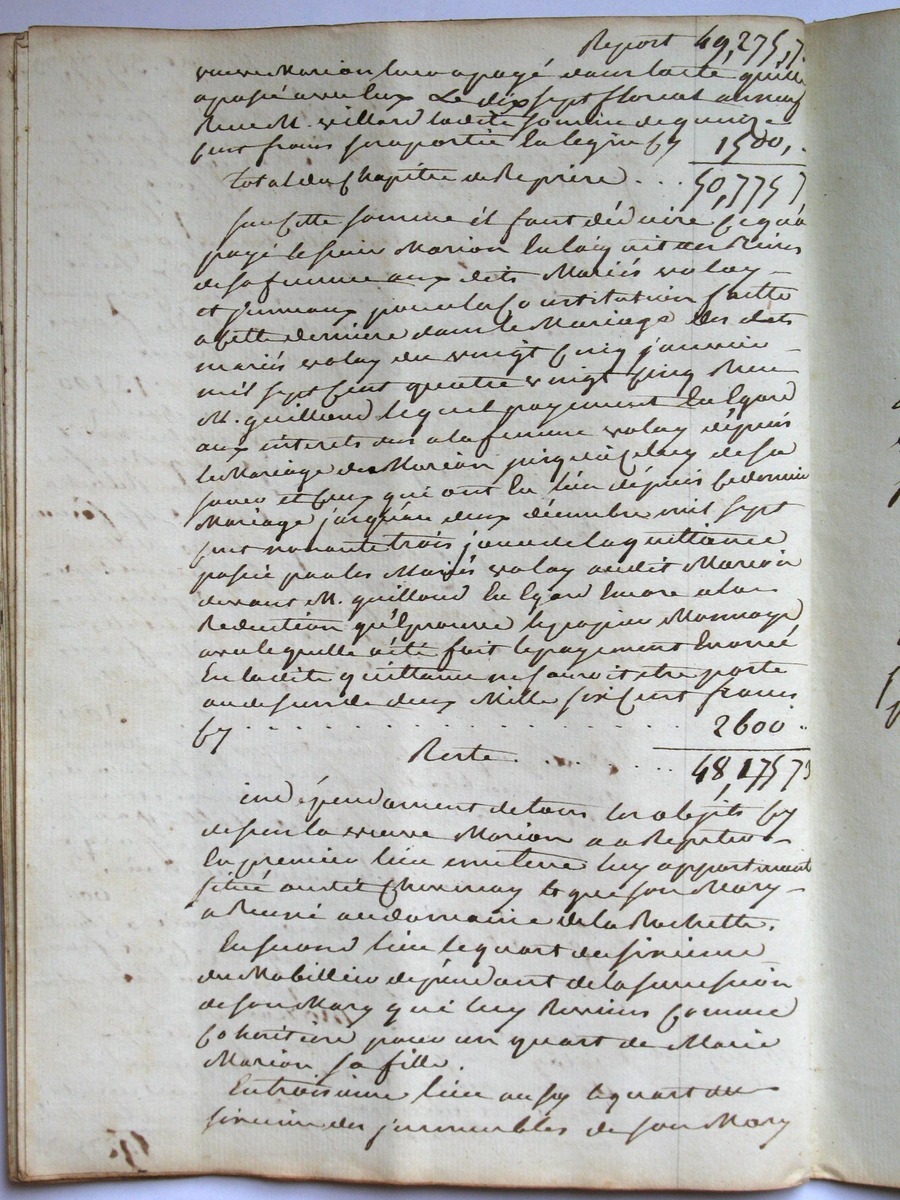 Report 49,275,7
veuve Marion luy a payé dans l'acte qu'ille
a passé avec lux Le dix sept floreal an neuf
Reçu M. villard ladite somme de quinze
cent francs sera portée en la ligne cy 1500,
total du Chapitre de Reprise . . . 50,775 7
sur cette somme il faut déduire ce qu'a
payé le sieur Marion en l'acquit des
de sa femme aux dits Mariés valay
et Jumeaux pour la constitution faitte
a cette derniere dans le Mariage des dets
mariés valay du vingt cinq janvier
mil sept cent quatre vingt cinq Reçu
M. guilloud lequel payement eu Egard
aux interets dus a la femme valay dépuis
le Mariage de Marion jusqu'a celuy de sa
soeur et ceux qui ont eu lieu dépuis ce dernier
Mariage jusqu'au deux décembre mil sept
cent nonante trois jour de la quittance
passée par les Mariés valay audit Marion
devant M. guilloud eu Egard Encore a la
Reduction qu'Eprouve le papier Monnoye
avec lequelle a été fait le payement Enoncé
En ladite quittance ne sauroit etre porté
au dessus de deux Mille six Cent francs
cy . . . . . . . . . . . . 2600 . .
Reste . . . . . . . 48,175 7
indépendament de tous les objets cy
dessus la veuve Marion a a Repeter
En premier lieu une terre luy appartenant
située audit Chennay et que son Mary
a Réuni au domaine de la Rochette.
En second lieu le quart du sixieme
du Mobillier dépendant de la succession
de son Mary qui luy Reviens comme
cohéritiere pour un quart de Marie
Marion sa fille.
En troisieme lieu aussy le quart du
sixieme des immeubles de son Mary